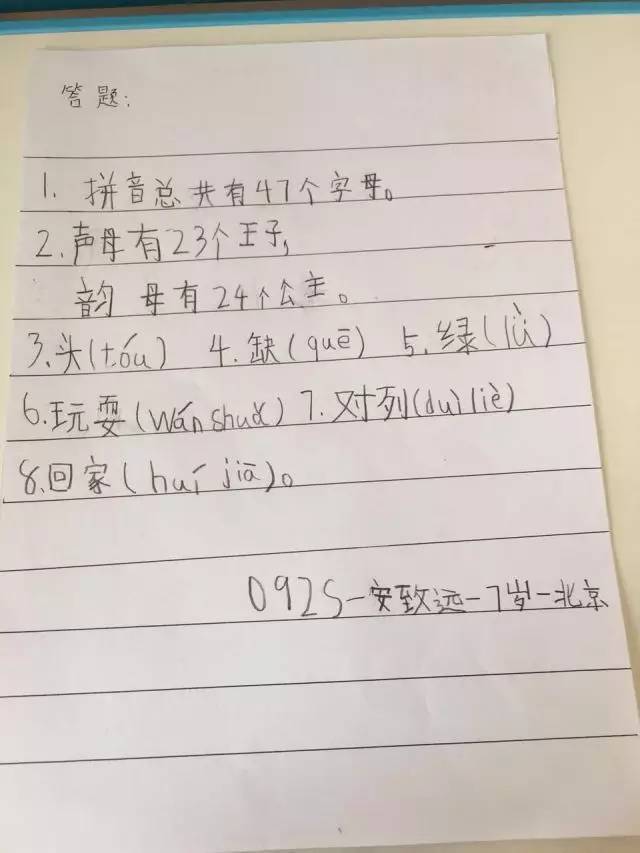 答题:
1. 拼音总共有47个字母。
2.声母有23个王子,
韵母有24个公主。
3.头(tóu) 4.缺(quē) 5.绿(lǜ)
6.玩耍(wánshuǎ) 7.对列(duìliè)
8.回家(huí jiā)。
0925-安致远-7岁-北京